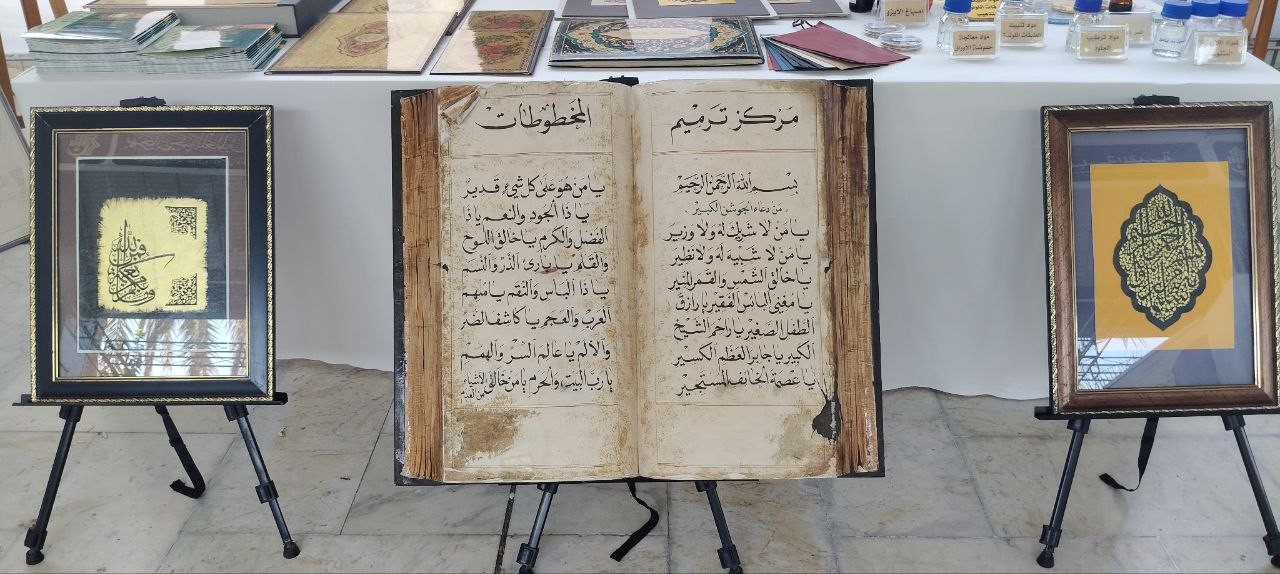 مركز ترميم
بسم الله الرحمن الرحيم
من دعاء الجوشن الكبير
يا من لا شريك له ولا وزير
يا من لا شبيه له ولا نظير
يا خالق الشمس والقمر المنير
يا مغني البائس الفقير يا رازق
الطفل الصغير يا راحم الشيخ
الكبير يا جابر العظم الكسير
يا عصمة الخائف المستجير
المخطوطات
يا من هو على كل شيء قدير
يا ذا الجود والنعم يا ذا
الفضل والكرم يا خالق اللوح
والقلم يا بارئ الذر والنسم
يا ذا البأس والنقم يا ملهم
العرب والعجم يا كاشف الضر
والألم يا عالم السر والهمم
يا رب البيت والحرم يا من خالق الأشياء
من العدم
أصباغ الايزو
مواد معالجة
حموضة الاوراق
مواد تثبيت
الطبقات الملونة
مواد ترطيب
الجلود